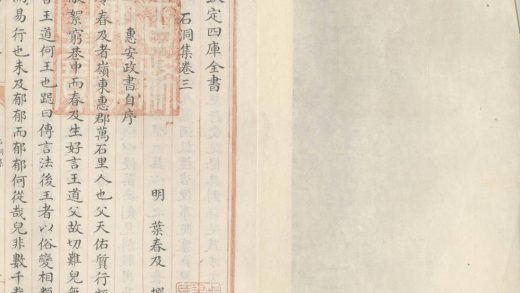 欽定四庫全書
石洞集卷三
明 葉春及 撰
惠安政書自序
春及者嶺東惠郡萬石里人也父天佑質行
絮窮巷中而春及生好言王道父故切難兒無
言王道何王也跽曰傳言法後王者以俗變相類
而易行也未及郁郁而郁郁何從哉兒非數千